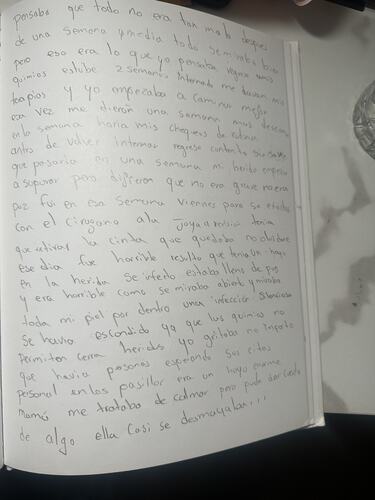 pensaba que todo no era tan malo despues
de una semana y media todo se miraba bien
pero eso era lo que yo pensaba regrese unos
quimios estube 2 semanas internada me davan mis
terapias y yo empezaba a caminar mejor
esa vez me dieron una semana mas descanso
en la semana haria mis chequeos de rutina
antes de volver internar regrese contenta sin saber
que pasaria en una semana mi herida empezo
a supurar pero dijieron que no era grave no era
puz fui en esa semana viernes para se efectos
con el cirugano a la revision tenia
que retirar la cinta que quedaba no olvidare
ese dia fue horrible resulto que tenia un hago
en la herida se infecto estaba lleno de pus
y era horrible como se miraba abierto y miraba
toda mi piel por dentro unca infección silenciosa
se havia escondido ya que las quimios no
permiten cerra heridas yo gritaba no importo
que havia personas esperando sus citas
personal en los pasillos era un hoyo enorme
mamá me trataba de calmar pero pude dar cuenta
de algo ella casi se desmayaba...